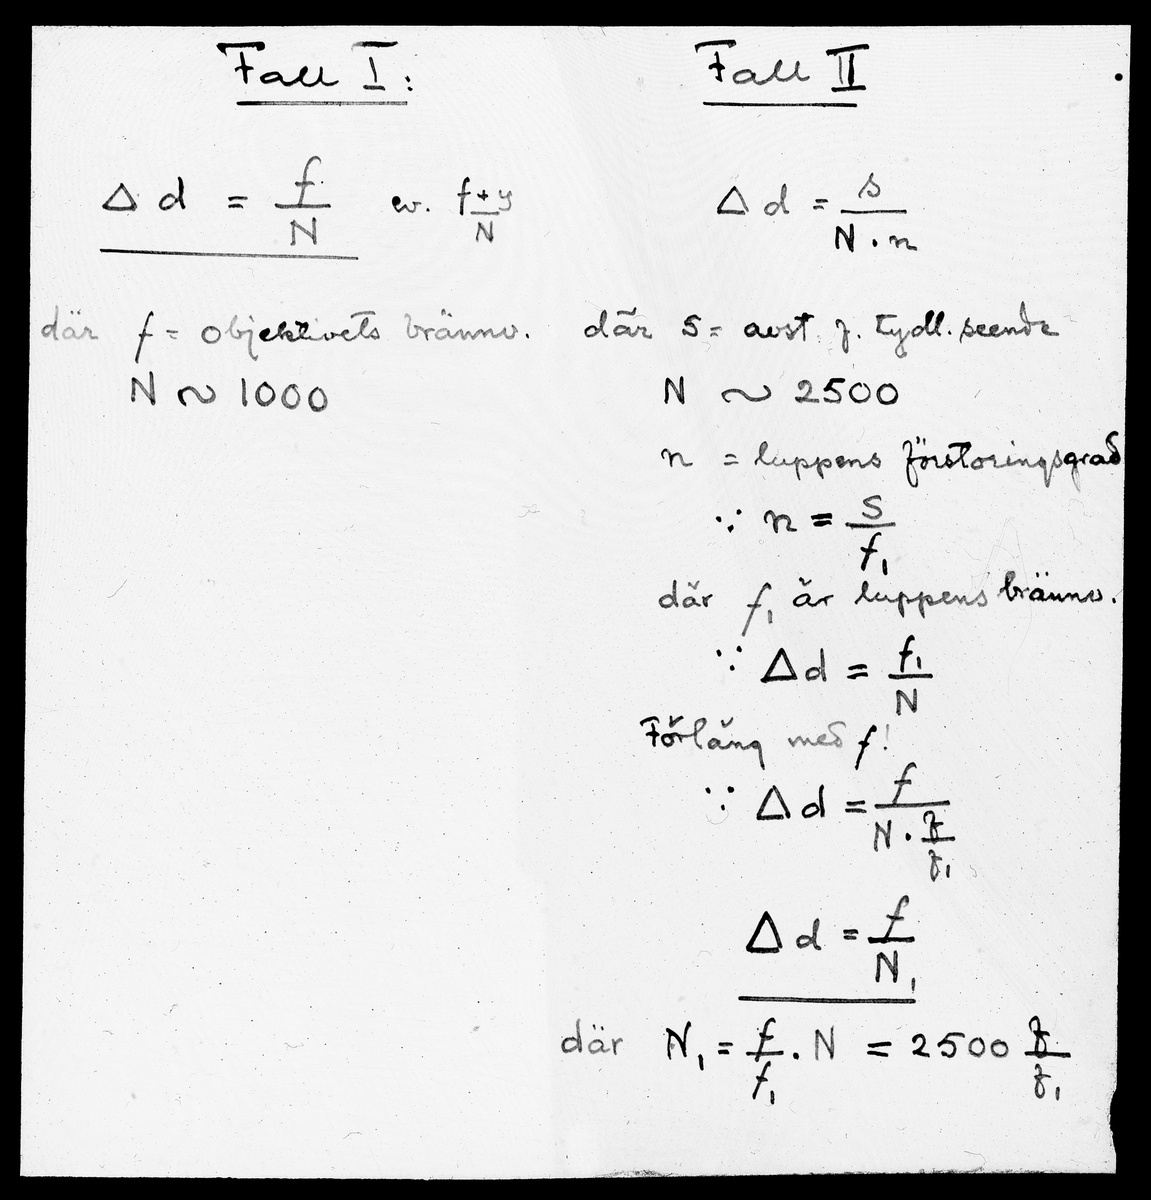 Fall I:
Δ d = f/N ev. f+y/N
där f = objektivets brännv.
N ~ 1000
Fall II
Δ d = s/N · n
där s = avst. f. tydl. seende
N ~ 2500
n = luppens förstoringsgrad
∵ n = s/f₁
där f₁ är luppens brännv.
∵ Δ d = f₁/N
Förläng med f!
∵ Δ d = f/N · f/f₁
Δ d = f/N₁
där N₁ = f/f₁ · N = 2500 f/f₁